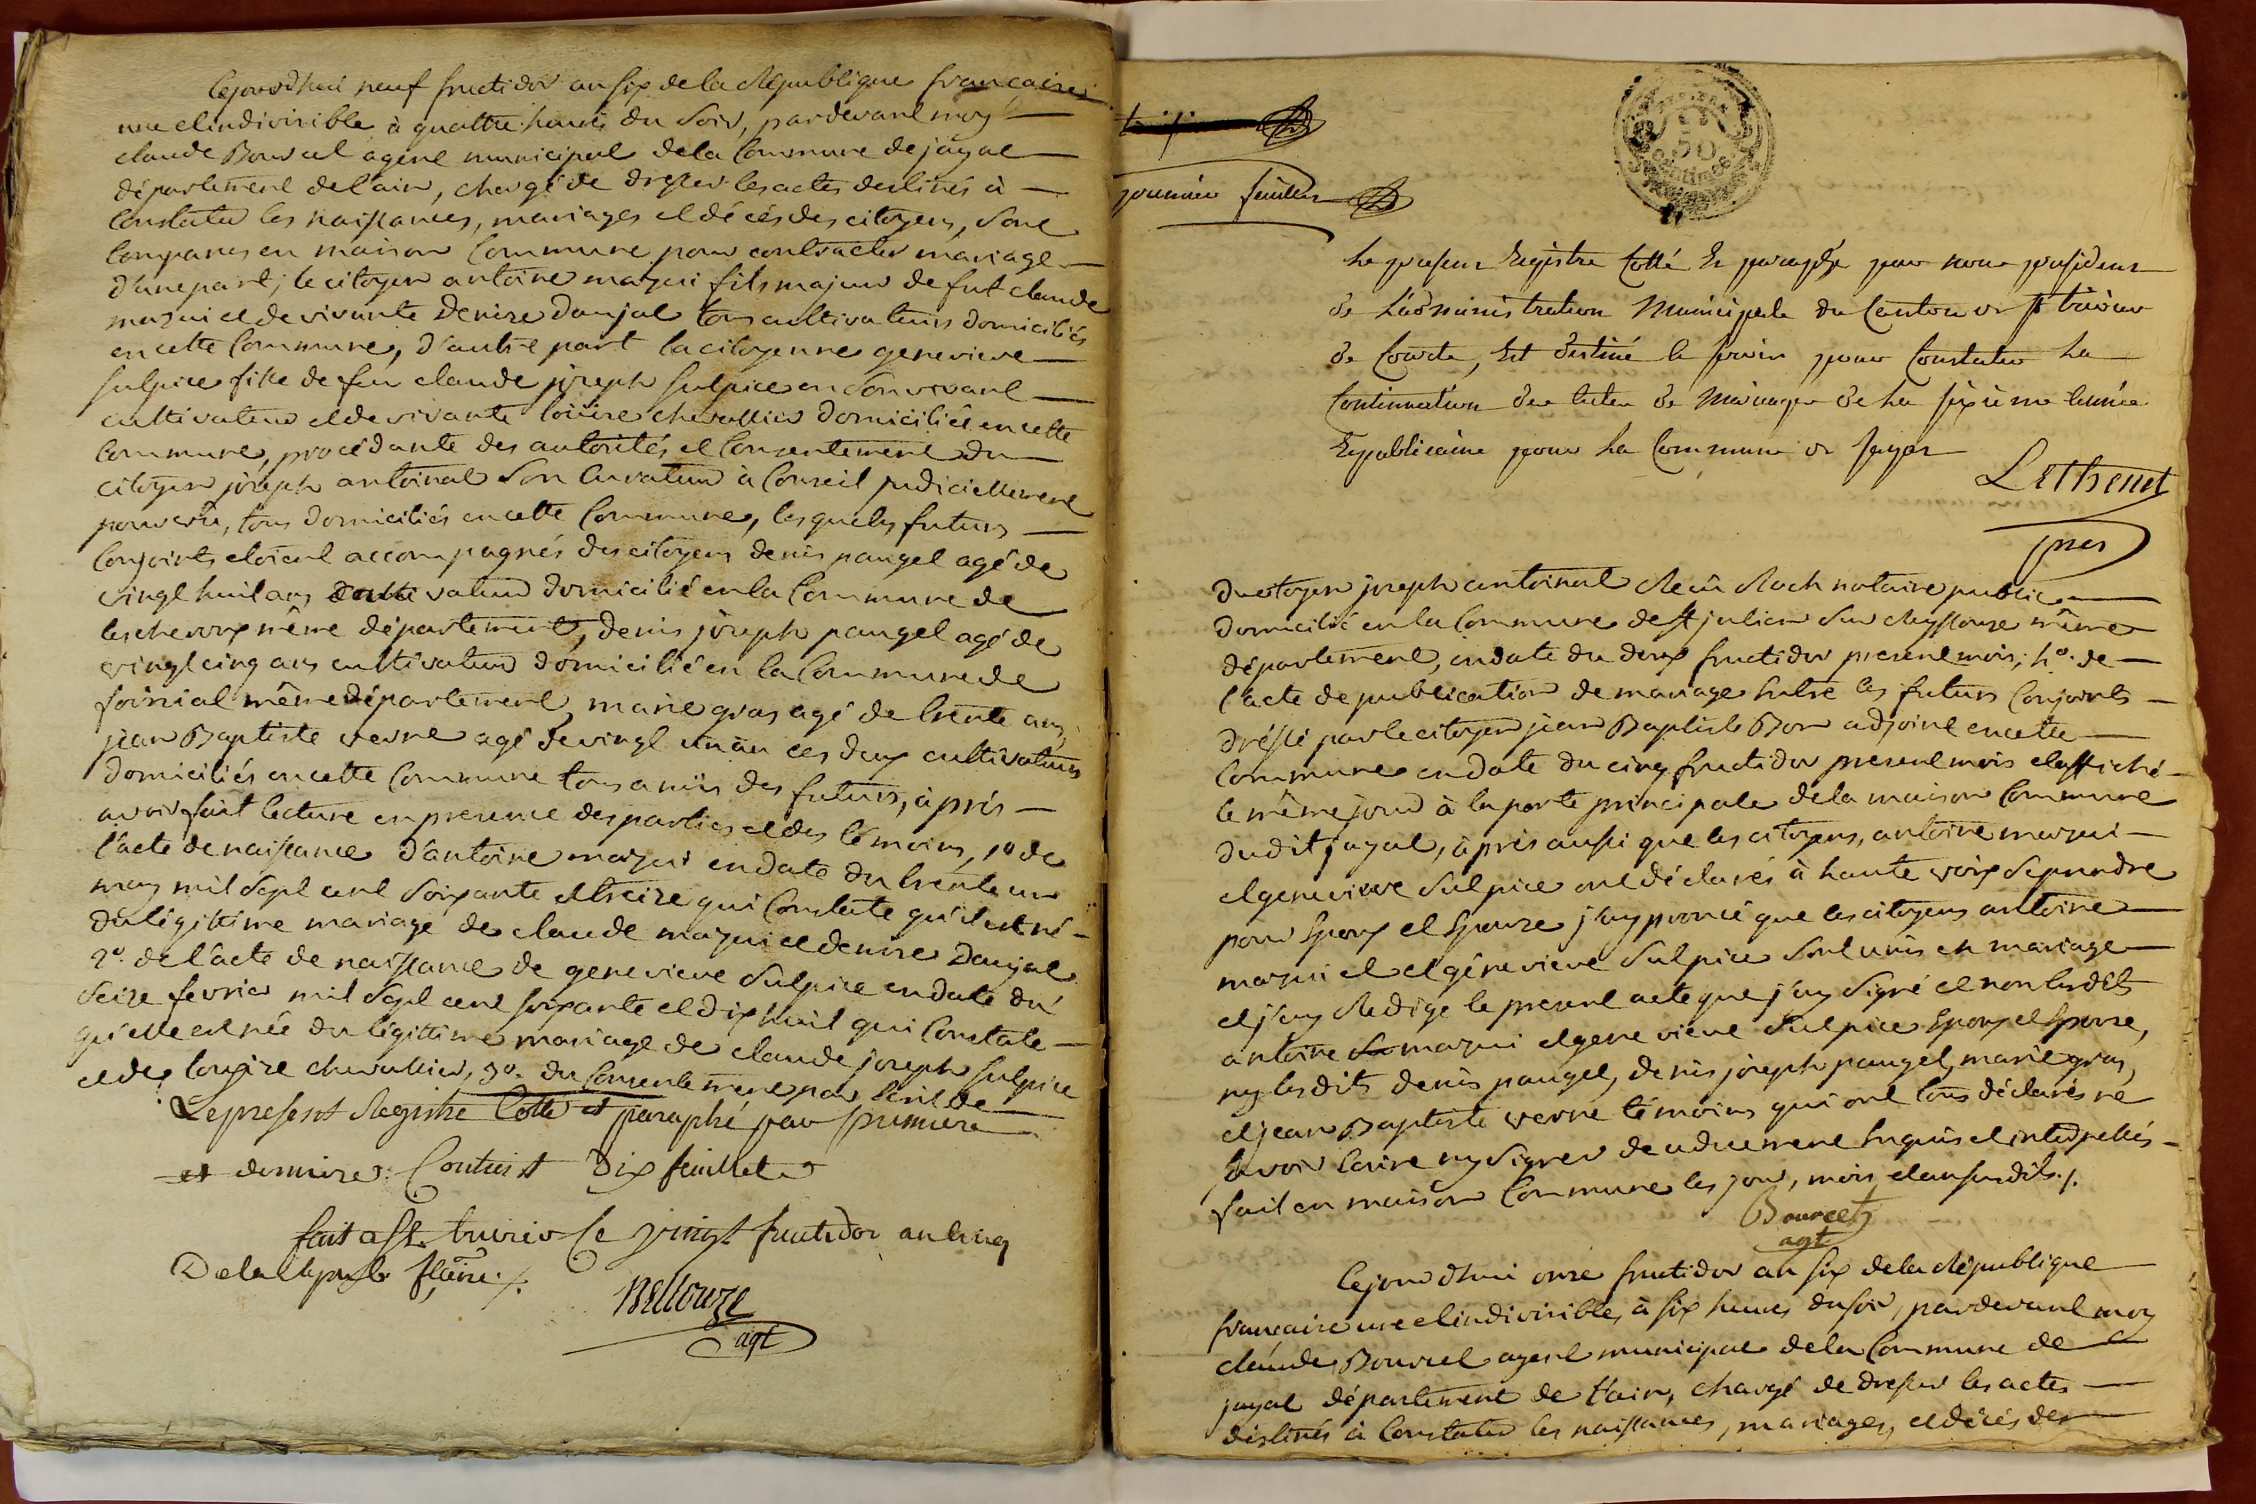 Cejourdhui neuf fructidor an six de la République française
une et indivisible à quattre heures du soir, pardevant moy
claude Bourcet agent municipal de la Commune de jayat
département de l'ain, chargé de dresser les actes destinés à
Constater les naissances, mariages et décés des citoyens, sont
Comparus en maison Commune pour contracter mariage
d'une part, le citoyen antoine mazui fils majeur de fut claude
mazui et de vivante Denise Danjat tous cultivateurs domiciliés
en cette Commune, d'autre part la citoyenne genevieve
sulpice fille de feu claude joseph sulpice en son vivant
cultivateur et de vivante loüise chevallier domiciliée en cette
Commune, procédante des autorités et Consentement du
citoyen joseph antoinat son Curateur à Conseil judiciellement
pourvu, tous domiciliés en cette Commune, lesquels futurs
Conjoints etoient accompagnés des citoyens denis paugel agé de
vingt huit ans cultivateur domicilié en la Commune de
lescheroux même département, denis joseph paugel agé de
vingt cinq ans cultivateur domicilié en la Commune de
foissiat même département, marie gras agé de trente ans,
jean Baptiste verne agé de vingt un an ces deux cultivateurs
domiciliés en cette Commune tous amis des futurs, après
avoir fait lecture en presence des parties et des témoins, 1º de
l'acte de naissance d'antoine mazui en date du trente un
may mil sept cent soixante et treize qui Constate qu'il est né
du légittime mariage de claude mazui et denise Danjat
2º. de l'acte de naissance de genevieve Sulpice en date du
seize fevrier mil sept cent soixante et dix huit qui Constate
qu'elle est née du légittime mariage de claude joseph sulpice
et de louise chevallier, 3º. du Consentement par Ecrit de
Le present Registre Cotté et paraphé par premiere
et derniere Contient dix feuillets
fait a St. trivier le vingt fructidor an cinq
De la Repub. fçaise ./.
Bellouze
agt
premier feuillet
50
centimes
Le present Registre Cotté Et paraphé par nous president
de L'administration Municipale du Canton de St trivier
de Courte, Est destiné a servir pour Constater La
Continuation des actes de Mariages de La sixieme année
Republicaine pour La Commune de Jayat
Lethenet
pres
du citoyen joseph antoinat Recu Roch notaire public
domicilié en la Commune de St julien sur Reyssouze même
département, en date du deux fructidor present mois, 4º. de
l'acte de publication de mariage Entre les futurs Conjoints
dressé par le citoyen jean Baptiste Bon adjoint en cette
Commune en date du cinq fructidor present mois et affiché
le même jour à la porte principale de la maison Commune
dudit jayat, après aussi que les citoyens, antoine mazui
et genevieve Sulpice ont déclarés à haute voix se prendre
pour Epoux et Epouse j'ay pronce que les citoyens antoine
mazui et et géneviève Sulpice sont unis en mariage
et j'ay Redige le present acte que j'ay signé et non lesdits
antoine mazui et genevieve Sulpice Epoux et Epouse,
ny lesdits denis paugel, denis joseph paugel, marie gras,
et jean Baptiste verne témoins qui ont tous déclarés ne
savoir Ecrire ny signer de ce duement Enquis et interpellés
fait en maison Commune les jour, mois et an susdits ./.
Bourcet
agt
Cejourdhui onze fructidor an six de la République
française une et indivisible, à six heures du soir, pardevant moy
claude Bourcet agent municipal de la Commune de
jayat département de l'ain, chargé de dresser les actes
destinés à Constater les naissances, mariages, et décés des